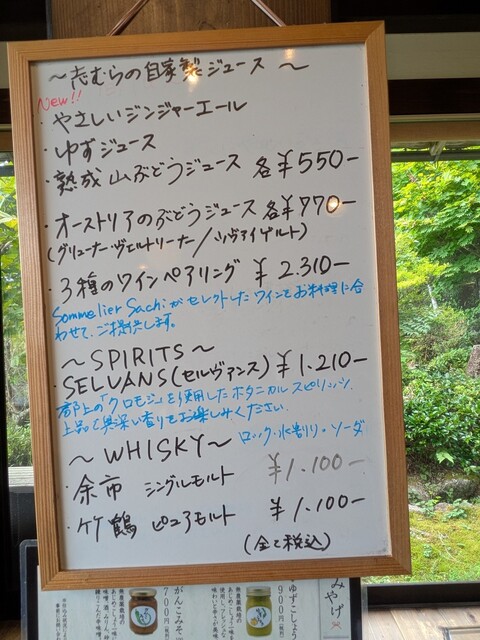 ～志むらの自家製ジュース～
New!!
・やさしいジンジャーエール
・ゆずジュース
・熟成 山ぶどうジュース 各¥550-
・オーストリアのぶどうジュース 各¥770-
(グリューナーヴェルトリーナー/ツヴァイゲルト)
・3種のワインペアリング ¥2.310-
Sommelier Sachiがセレクトしたワインをお料理に合
わせて、ご提供します。
～SPIRITS～
・SELVANS(セルヴァンス) ¥1.210-
郡上の「クロモジ」を使用したボタニカルスピリッツ。
上品で奥深い香りをお楽しみください。
～WHISKY～ ロック・水割り・ソーダ
・余市 シングルモルト ¥1.100-
・竹鶴 ピュアモルト ¥1.100-
(全て税込)
みやげ
ゆずこしょう
900円
がんこみそ
700円